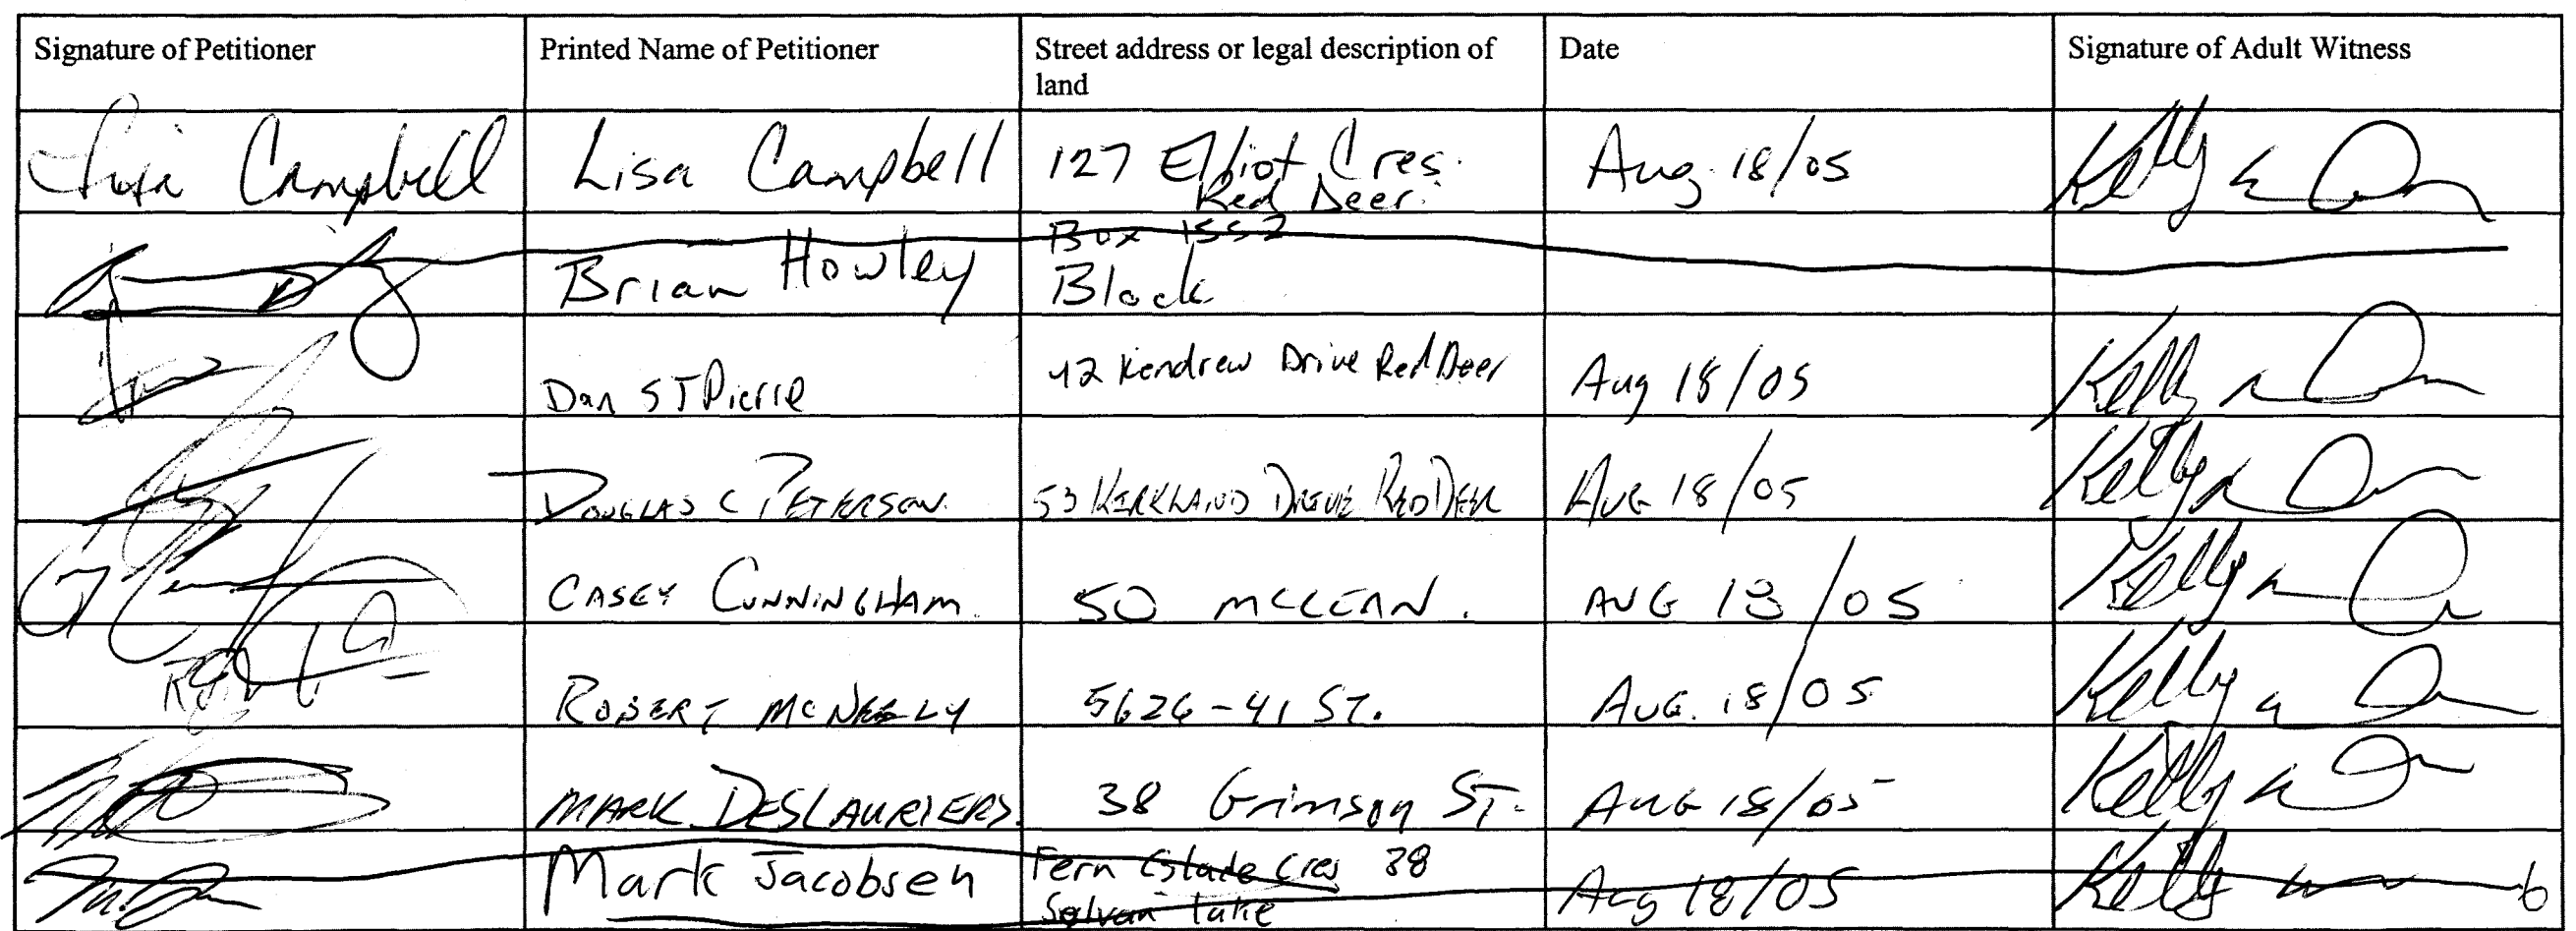 Signature of Petitioner Printed Name of Petitioner Street address or legal description of land Date Signature of Adult Witness
Lisa Campbell Lisa Campbell 127 Elliot Cres. Aug. 18/05 Kelly
Red Deer.
Box 1552
Brian Howley Block
Dan ST Pierre 42 Kendrew Drive Red Deer Aug 18/05 Kelly
DOUGLAS C PETERSON. 53 KIRKLAND DRIVE RED DEER AUG 18/05 Kelly
CASEY CUNNINGHAM. 50 MCLEAN. AUG 18/05 Kelly
ROBERT MCNEELY 5626-41 ST. AUG. 18/05 Kelly
MARK DESLAURIERS. 38 Grimson ST. AUG 18/05 Kelly
Mark Jacobsen Fern Estate Cres 38 Aug 18/05 Kelly 6
Sylvan Lake